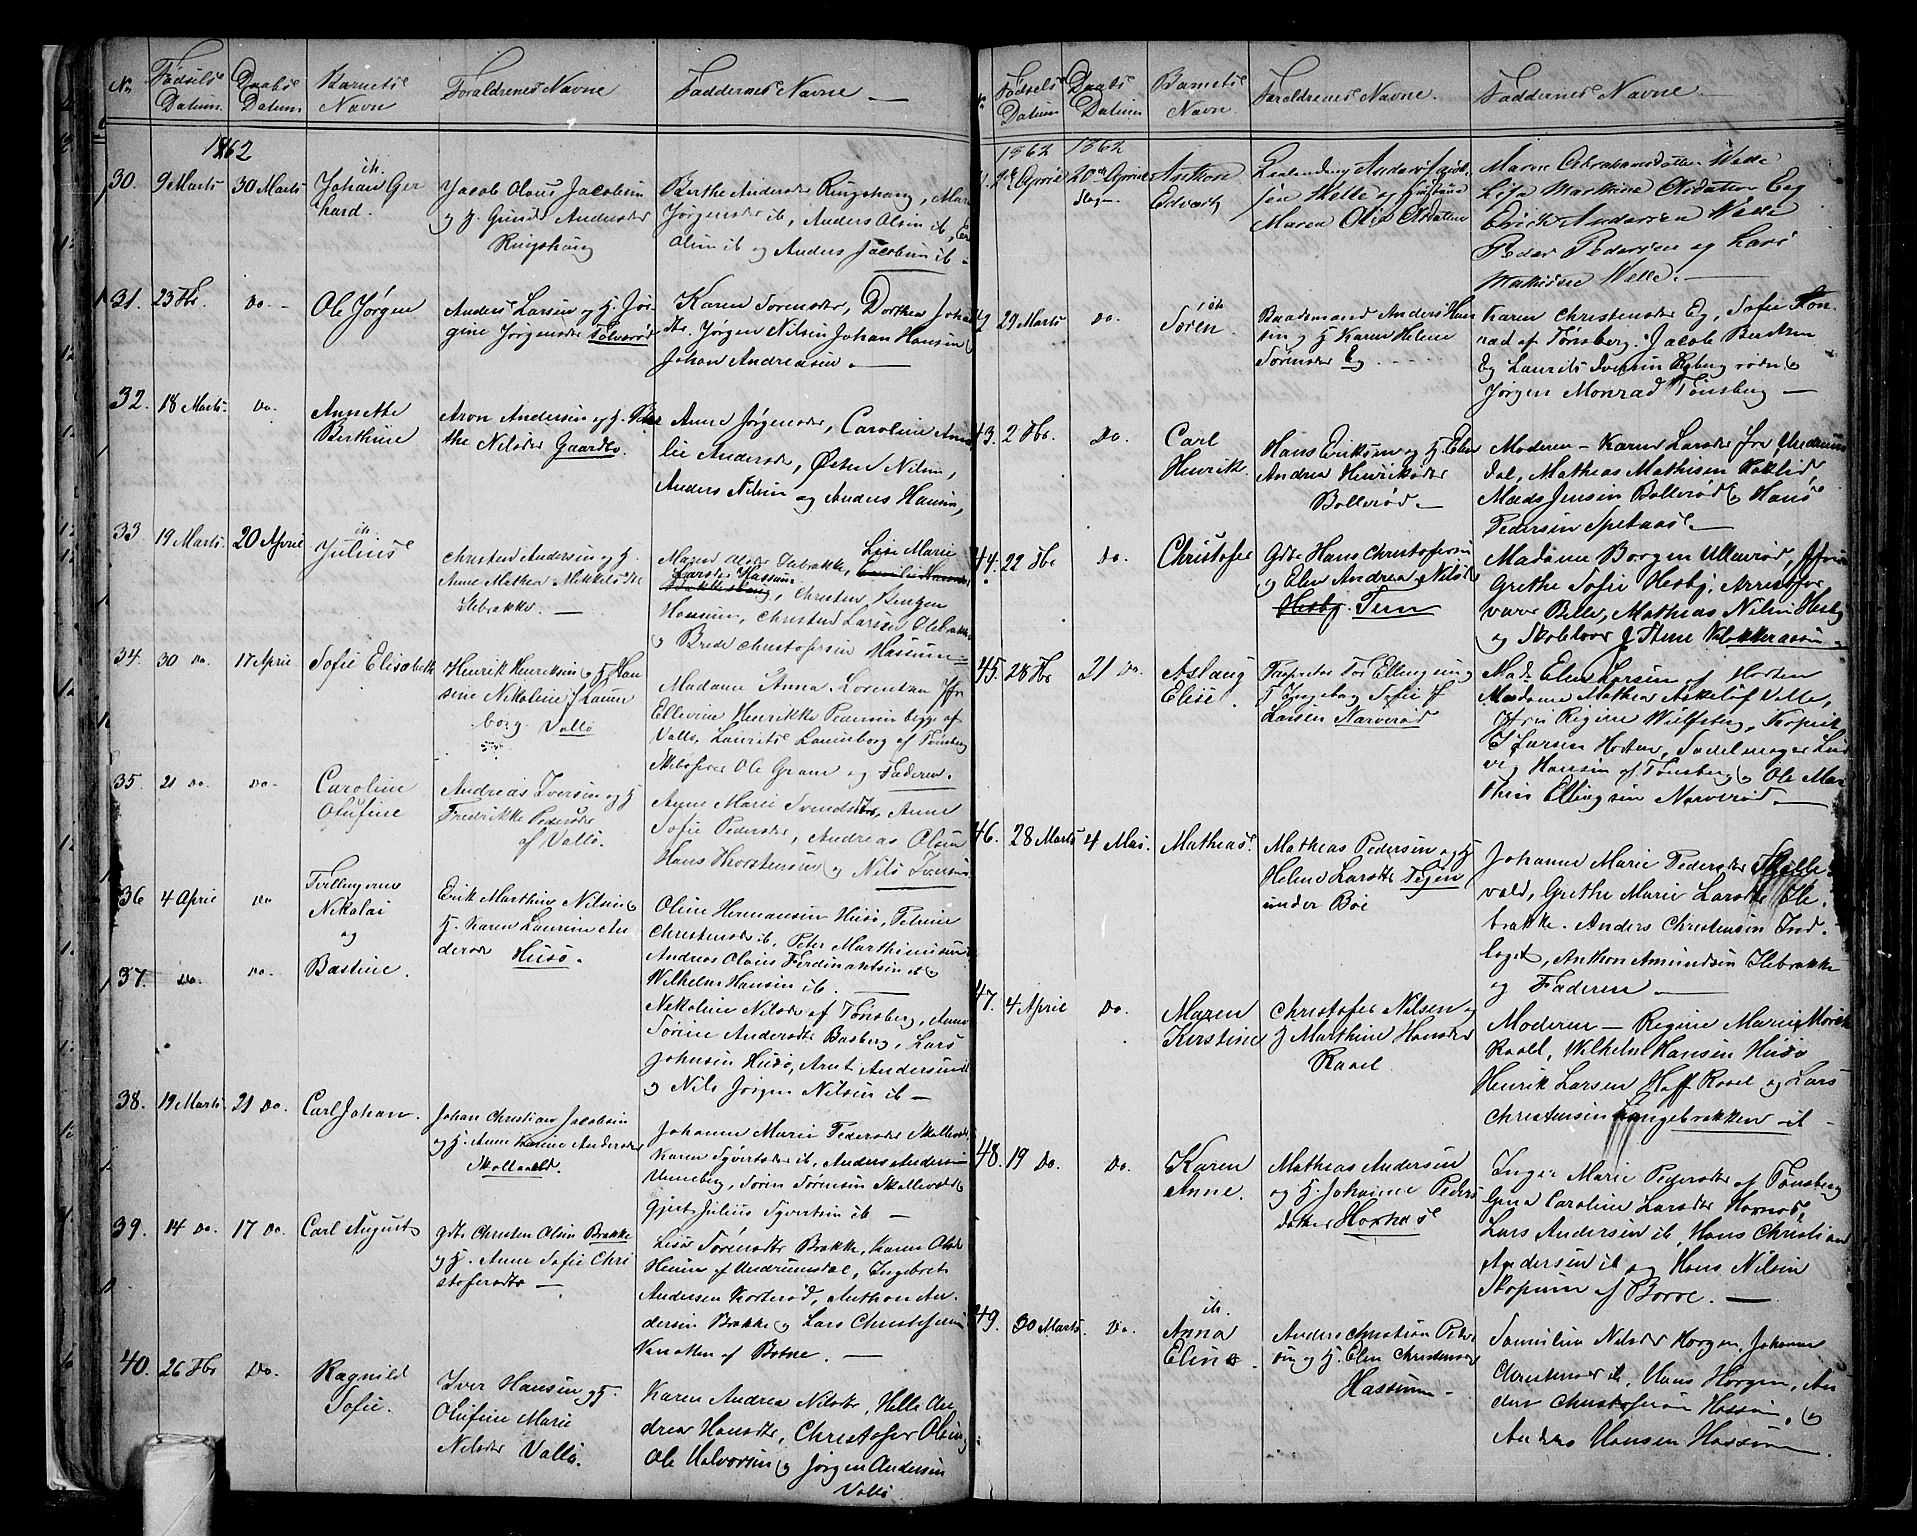 No. Fødsels Datum. Daabs Datum. Barnets Navn Forældrenes Navne Faddernes Navne
1862
30. 9 Marts 30 Marts ih. Johan Ger
hard.
Jacob Olaus Jacobsen
og H. Gunild Andersdr
Ringshaug
Berthe Andersdr Ringshaug, Maren
Jørgensdr ib, Anders Olsen ib,
Olsen ib og Anders Jacobsen ib
31. 23 Fbr. Do. Ole Jørgen
Anders Larsen og H. Jør
gine Jørgensdr Tolvsrød
Karen Sørensdr, Dorthea Johan
dtr. Jørgen Nilsen Johan Hansen og
Johan Andreasen.
32. 18 Marts. Do. Annethe
Berthine
Aron Andersen og H.
the Nilsdr Gaardbo.
Anne Jørgensdr, Caroline Ama
lie Andersdr, Østen Nilsen,
Anders Nilsen og Anders Hansen,
33. 19 Marts. 20 April ih. Julius
Christen Andersen og H.
Anne Mathea Mikkelsdtr
Ilebrække.
Maren Olsdr Ilebrække, Lise Marie
Larsdr Hassum
Christen Bentzen
Hassum, Christen Larsen Ilebrække
og Brede Christofersen Hassum
34. 30 Do. 17 April Sofie Elisabeth
Henrik Henriksen og H. Han
sine Nikoline f. Lauen
borg. Vallø
Madame Anna Lorentzen Jfr.
Ellevine Henrikke Pedersen begge af
Vallø, Laurits Lauenborg af Tønsberg
Skibsfører Ole Gram og Faderen.
35. 21 Do. Do. Caroline
Olufine
Andreas Iversen og H
Fredrikke Pedersdr
af Vallø.
Anne Marie Svendsdtr, Anne
Sofie Pedersdr, Andreas Olsen
Hans Thorstensen og Nils Iversen
36 4 April Do Tvillingerne
Nikolai
og
37. Do. Do. Bastine.
Erik Marthin Nilsen og
H. Karen Laurine An
dersdr Husø.
Oline Hermansen Husø, Petrine
Christensdr ib, Peter Marthinusen
Andreas Olaus Ferdinantsen ib og
Wilhelm Hansen ib.
Nikoline Nilsdr af Tønsberg, Anne
Sørine Andersdtr Basberg, Lars
Johnsen Husø, Arnt Andersen ib
og Nils Jørgen Nilsen ib
38. 19 Marts 21 Do. Carl Johan.
Johan Christian Jacobsen
og H. Anne Karine Andersdr
Skallevold.
Johanne Marie Pedersdr Skallevold
Karen Syvertsdr ib, Anders Andersen
Unneberg, Søren Sørensen Skallevold og
Gjert Julius Syvertsen ib
39. 14 Do 17 Do. Carl August
gdb. Christen Olsen Brække
og H. Anne Sofie Chri
stofersdtr
Lisa Sørensdtr Brække, Karen Olsdr
Heien af Undrumsdal, Ingebret
Andersen Korterød, Anthon An
dersen Brække og Lars Christofersen
Vanatten af Botne.
40. 26 Fbr Do. Ragnild
Sofie.
Iver Hansen og H.
Olufine Marie
Nilsdtr Vallø.
Karen Andrea Nilsdtr, Helle An
drea Hansdtr, Christofer Olsen,
Ole Halvorsen og Jørgen Andersen
Vallø
Fødsels Datum Daabs Datum Barnets Navn. Forældrenes Navne. Faddernes Navne
1862 1862
2de April 20de April Anthon
Edvard
Maren Olia Olsdatter
Maren Abrahamsdatter Velle
Lisa Mathine Olsdatter Eeg
Erick Andersen Velle
Peder Pedersen og Lars
Mathisen Velle.
42. 29 Marts Do. ih Søren.
Baadsmand Anders Han
sen og H. Karen Helene
Sørensdr Eg
Karen Christensdr Eg, Sofie Mon
rad af Tønsberg. Jacob Bentzen
Eg Laurits Iversen Ryberg røden og
Jørgen Monrad Tønsberg
43. 2 Fbr. Do. Carl
Henrik.
Hans Eriksen og H. Elen
Andrea Henriksdtr
Bollerød.
Moderen - Karen Larsdr fra Undrums
dal, Mathias Mathisen Røklid,
Mads Jensen Bollerød og Hans
Pedersen Spetaas.
44. 22 Fbr Do. Christofer
Gdb Hans Christofersen
og Elen Andrea Nilsd
Hesby. Tem
Madame Borgen Ullevrød, Jfr.
Grethe Sofie Hesby, Arrestfor
varer Bele, Mathias Nilsen Hesby
og Skolelærer J. Arne Klokkeraasen
45. 28 Fbr 21 Do. Aslaug
Elise.
Inspektør Tor Ellingsen og
H Ingeborg Sofie f.
Larsen Narverød
Mad. Elen Larsen af Horten
Madame Mathea Askelöf Velle,
Jfru Regine Wulfsberg, Kopist
E Larsen Horten, Sadelmager Lud
vig Hansen af Tønsberg og Ole Mar
thin Ellingsen Narverød.
46. 28 Marts 4 Mai. Mathias.
Mathias Pedersen og H
Helene Larsdtr Tejen
under Bøe
Johanne Marie Pedersdr Skalle
vold, Grethe Marie Larsdtr Ile
brække. Anders Christensen Ind
laget, Anthon Amundsen Ilebrække
og Faderen
47. 4 April Do. Maren
Kirstine
Christofer Nilsen og
H Marthine Hansdr
Raael
Moderen - Regine Marie
Raael, Wilhelm Hansen Husø
Henrik Larsen Hoff Raael og Lars
Christensen Langebrækken ib
48. 19 Do. Do. Karen
Anne.
Mathias Andersen
og H. Johanne Peders
datter Hornæs
Inger Marie Pedersdr af Tønsberg
Gina Caroline Larsdr Hornæs,
Lars Andersen ib, Hans Christian
Andersen ib og Hans Nilsen
Skopum af Borre.
49. 30 Marts. Do. ih. Anna
Eline.
Anders Christian Peter
sen og H. Elen Christensdr
Hassum
Nilsdr Horgen, Johanne
Christensdr ib, Hans Horgen, An
ders Christofersen Hassum, og
Anders Hansen Hassum.